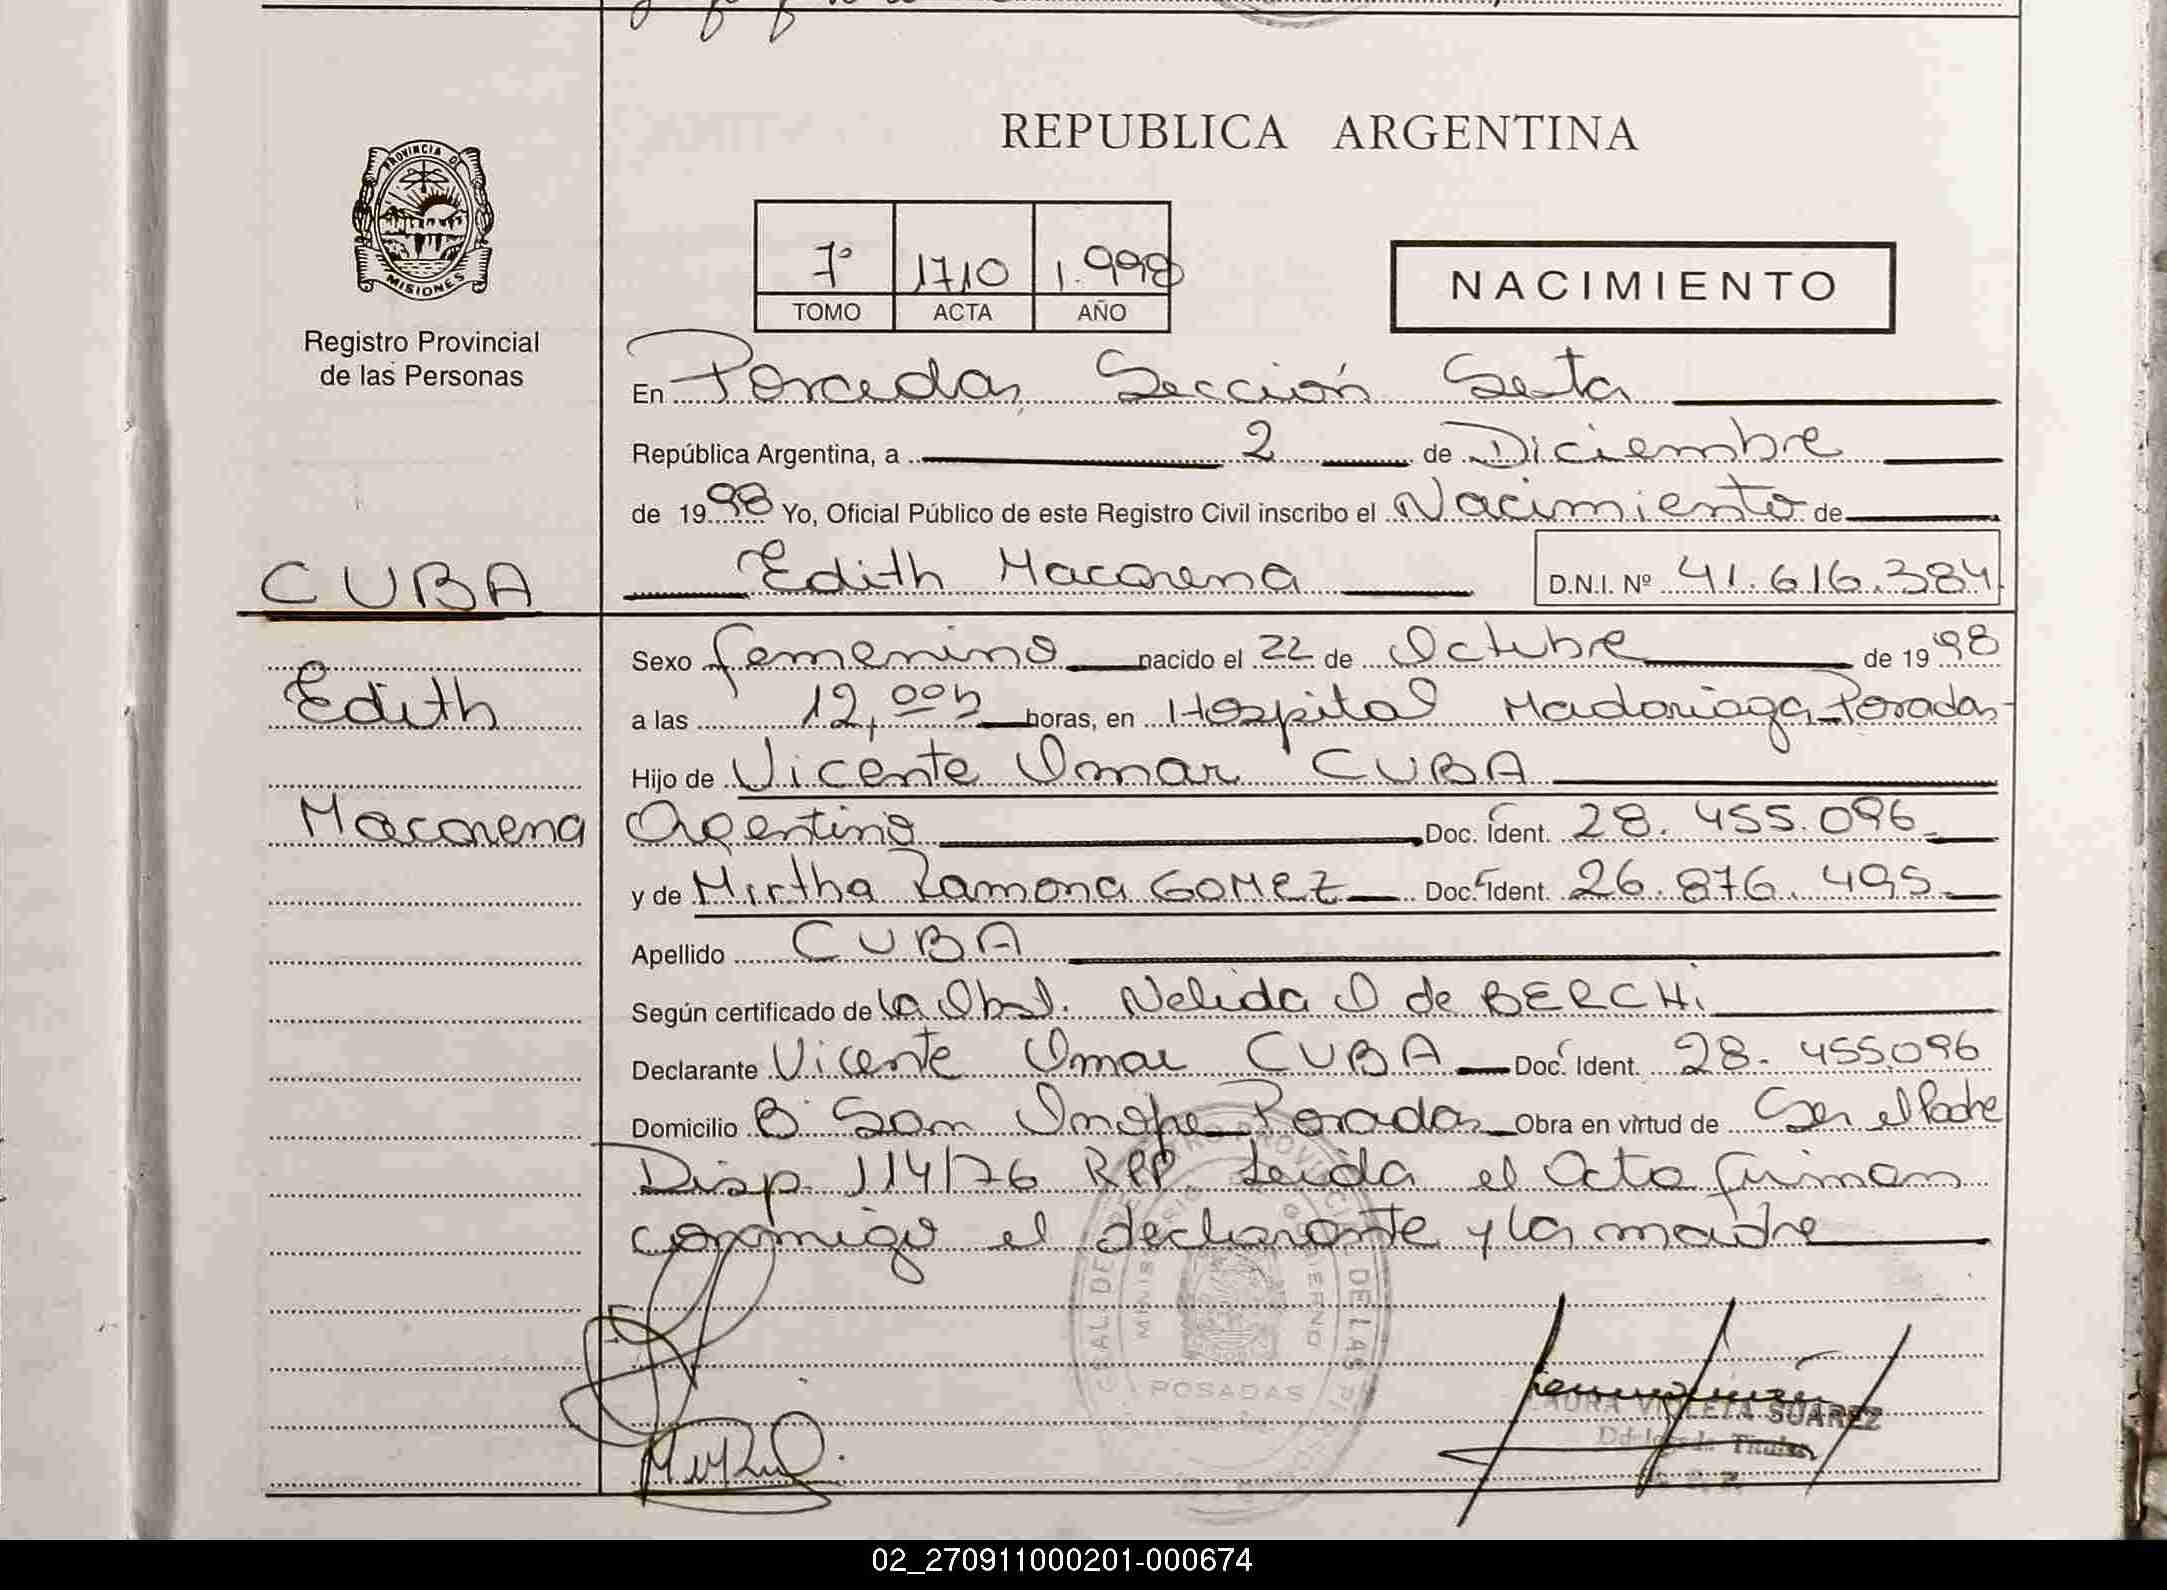 REPUBLICA ARGENTINA
PROVINCIA DE
MISIONES
Registro Provincial
de las Personas
7º 1710 1.998
TOMO ACTA AÑO
NACIMIENTO
En Posadas, Sección Sexta
República Argentina, a 2 de Diciembre
de 1998 Yo, Oficial Público de este Registro Civil inscribo el Nacimiento de
CUBA
Edith Macarena D.N.I. Nº 41.616.384
Sexo femenino nacido el 22 de Octubre de 1998
Edith
a las 12,00h horas, en Hospital Madariaga-Posadas-
Hijo de Vicente Omar CUBA
Macarena
Argentino Doc. Ident. 28.455.096
y de Mirtha Ramona GOMEZ Doc. Ident. 26.876.495
Apellido CUBA
Según certificado de la Obst. Nelida O de BERCHI
Declarante Vicente Omar CUBA Doc. Ident. 28.455.096
Domicilio Bº San Onofre Posadas Obra en virtud de Ser el Padre
Disp. 114/76 RPP. Leida el Acta firman
conmigo el declarante y la madre
POSADAS
LAURA VIOLETA SUAREZ
Delegada Titular
02_270911000201-000674